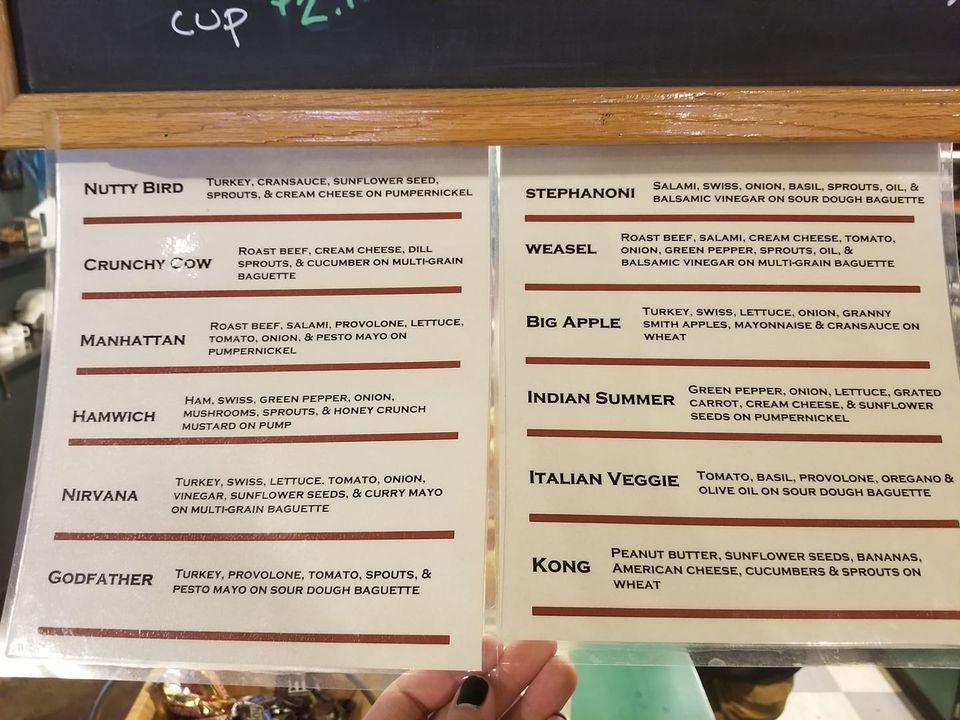 CUP +2.
NUTTY BIRD TURKEY, CRANSAUCE, SUNFLOWER SEED,
SPROUTS, & CREAM CHEESE ON PUMPERNICKEL
CRUNCHY COW ROAST BEEF, CREAM CHEESE, DILL
SPROUTS, & CUCUMBER ON MULTI-GRAIN
BAGUETTE
MANHATTAN ROAST BEEF, SALAMI, PROVOLONE, LETTUCE,
TOMATO, ONION, & PESTO MAYO ON
PUMPERNICKEL
HAMWICH HAM, SWISS, GREEN PEPPER, ONION,
MUSHROOMS, SPROUTS, & HONEY CRUNCH
MUSTARD ON PUMP
NIRVANA TURKEY, SWISS, LETTUCE, TOMATO, ONION,
VINEGAR, SUNFLOWER SEEDS, & CURRY MAYO
ON MULTI-GRAIN BAGUETTE
GODFATHER TURKEY, PROVOLONE, TOMATO, SPOUTS, &
PESTO MAYO ON SOUR DOUGH BAGUETTE
STEPHANONI SALAMI, SWISS, ONION, BASIL, SPROUTS, OIL, &
BALSAMIC VINEGAR ON SOUR DOUGH BAGUETTE
WEASEL ROAST BEEF, SALAMI, CREAM CHEESE, TOMATO,
ONION, GREEN PEPPER, SPROUTS, OIL, &
BALSAMIC VINEGAR ON MULTI-GRAIN BAGUETTE
BIG APPLE TURKEY, SWISS, LETTUCE, ONION, GRANNY
SMITH APPLES, MAYONNAISE & CRANSAUCE ON
WHEAT
INDIAN SUMMER GREEN PEPPER, ONION, LETTUCE, GRATED
CARROT, CREAM CHEESE, & SUNFLOWER
SEEDS ON PUMPERNICKEL
ITALIAN VEGGIE TOMATO, BASIL, PROVOLONE, OREGANO &
OLIVE OIL ON SOUR DOUGH BAGUETTE
KONG PEANUT BUTTER, SUNFLOWER SEEDS, BANANAS,
AMERICAN CHEESE, CUCUMBERS & SPROUTS ON
WHEAT